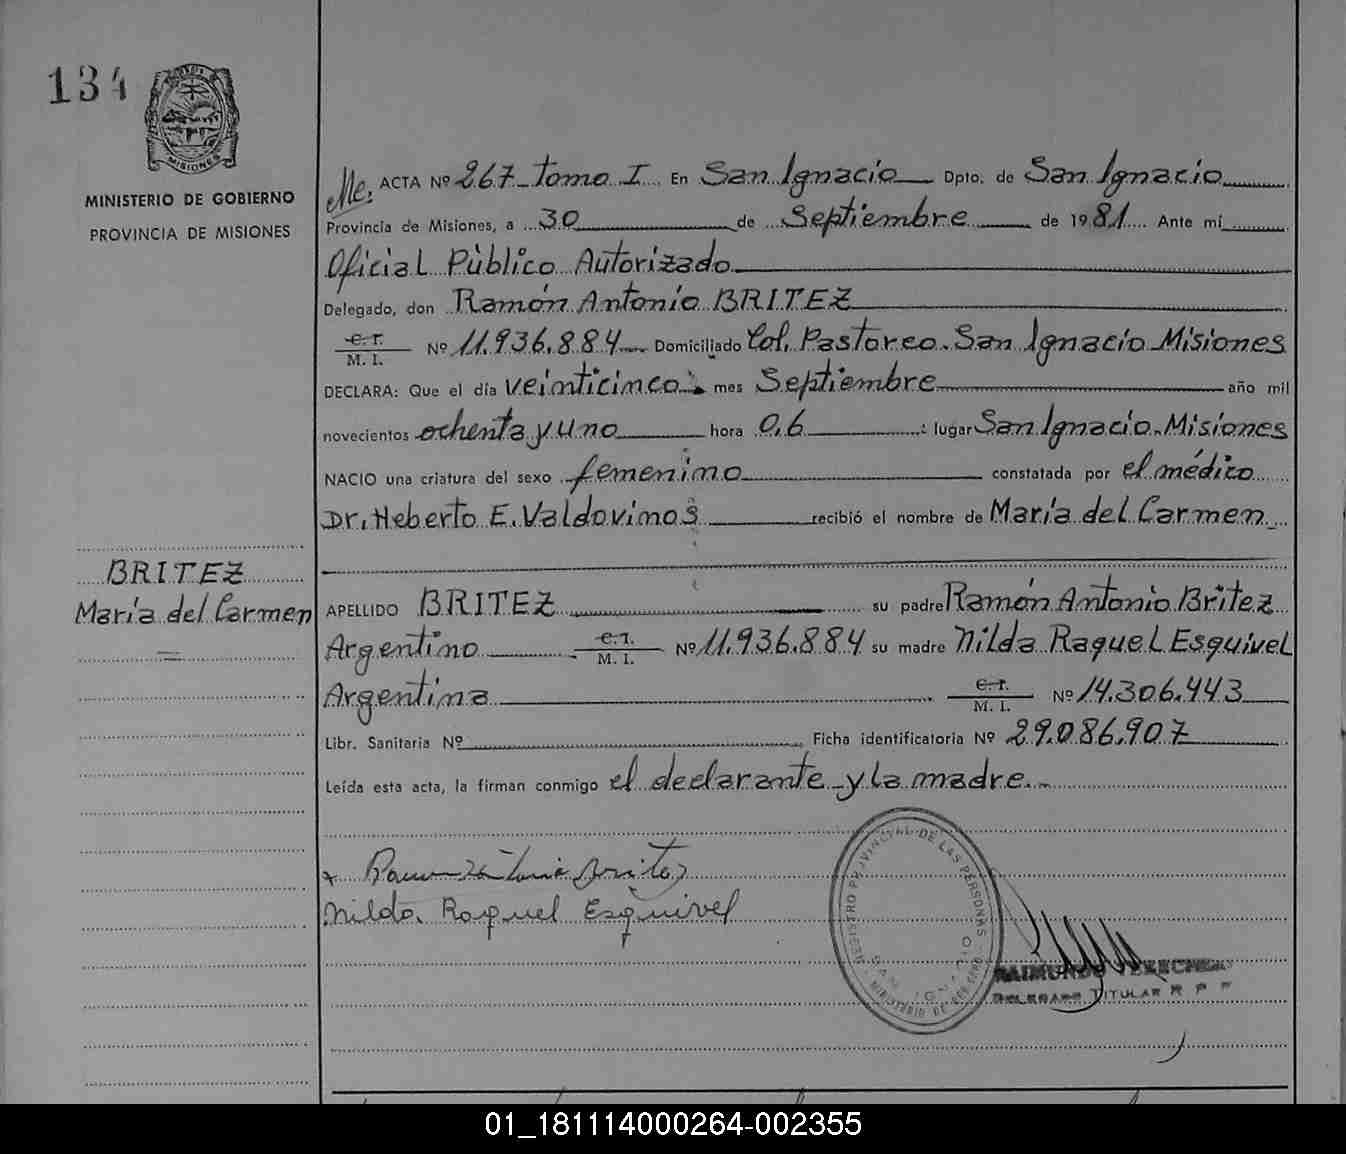 134
MISIONES
MINISTERIO DE GOBIERNO
PROVINCIA DE MISIONES
BRITEZ
María del Carmen
ACTA Nº 267 - Tomo I. En San Ignacio Dpto. de San Ignacio
Provincia de Misiones, a 30 de Septiembre de 1981 Ante mí
Oficial Público Autorizado
Delegado, don Ramón Antonio BRITEZ
C. I.
M. I. Nº 11.936.884 Domiciliado Col. Pastoreo. San Ignacio Misiones
DECLARA: Que el día veinticinco mes Septiembre año mil
novecientos ochenta y uno hora 0,6 : lugar San Ignacio - Misiones
NACIO una criatura del sexo femenino constatada por el médico
Dr. Heberto E. Valdovinos recibió el nombre de María del Carmen
APELLIDO BRITEZ su padre Ramón Antonio Britez
Argentino C. I.
M. I. Nº 11.936.884 su madre Nilda Raquel Esquivel
Argentina C. I.
M. I. Nº 14.306.443
Libr. Sanitaria Nº Ficha identificatoria Nº 29.086.907
Leída esta acta, la firman conmigo el declarante y la madre.
Ramon Antonio Britez
Nilda Raquel Esquivel
REGISTRO PROVINCIAL DE LAS PERSONAS
SAN IGNACIO
MINISTERIO DE GOBIERNO
RAIMUNDO
DELEGADO TITULAR R P P
01_181114000264-002355